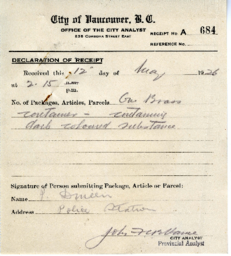 City of Vancouver, B. C.
OFFICE OF THE CITY ANALYST
236 CORDOVA STREET EAST
RECEIPT No. A 684
REFERENCE No.
DECLARATION OF RECEIPT
Received this 12 day of May 1926
at 2.15 P.M.
No. of Packages, Articles, Parcels. One Brass
container - containing
dark coloured substance.
Signature of Person submitting Package, Article or Parcel:
Name
Address Police Station
CITY ANALYST
Provincial Analyst